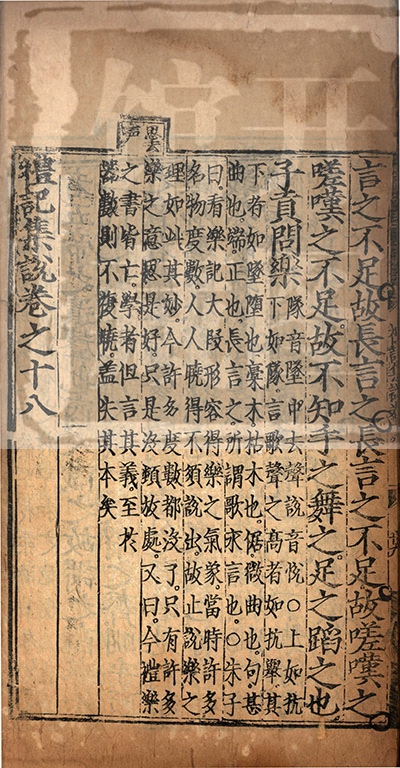 言之不足故長言之長言之不足故嗟嘆之
嗟嘆之不足故不知手之舞之足之蹈之也
子貢問樂
隊音墜中去聲說音悅○上如抗
下如隊言歌聲之高者如抗舉其
下者如墜墮也槀木枯木也倨微曲也句甚
曲也端正也長言之所謂歌永言也○朱子
曰看樂記大段形容得樂之氣象當時許多
名物度數人人曉得不須說出故止說樂之
理如此其妙今許多度數都沒了只有許多
樂之意思是好只是沒頓放處又曰今禮樂
之書皆亡學者但言其義至於
器數則不復曉蓋失其本矣
禮記集說卷之十八